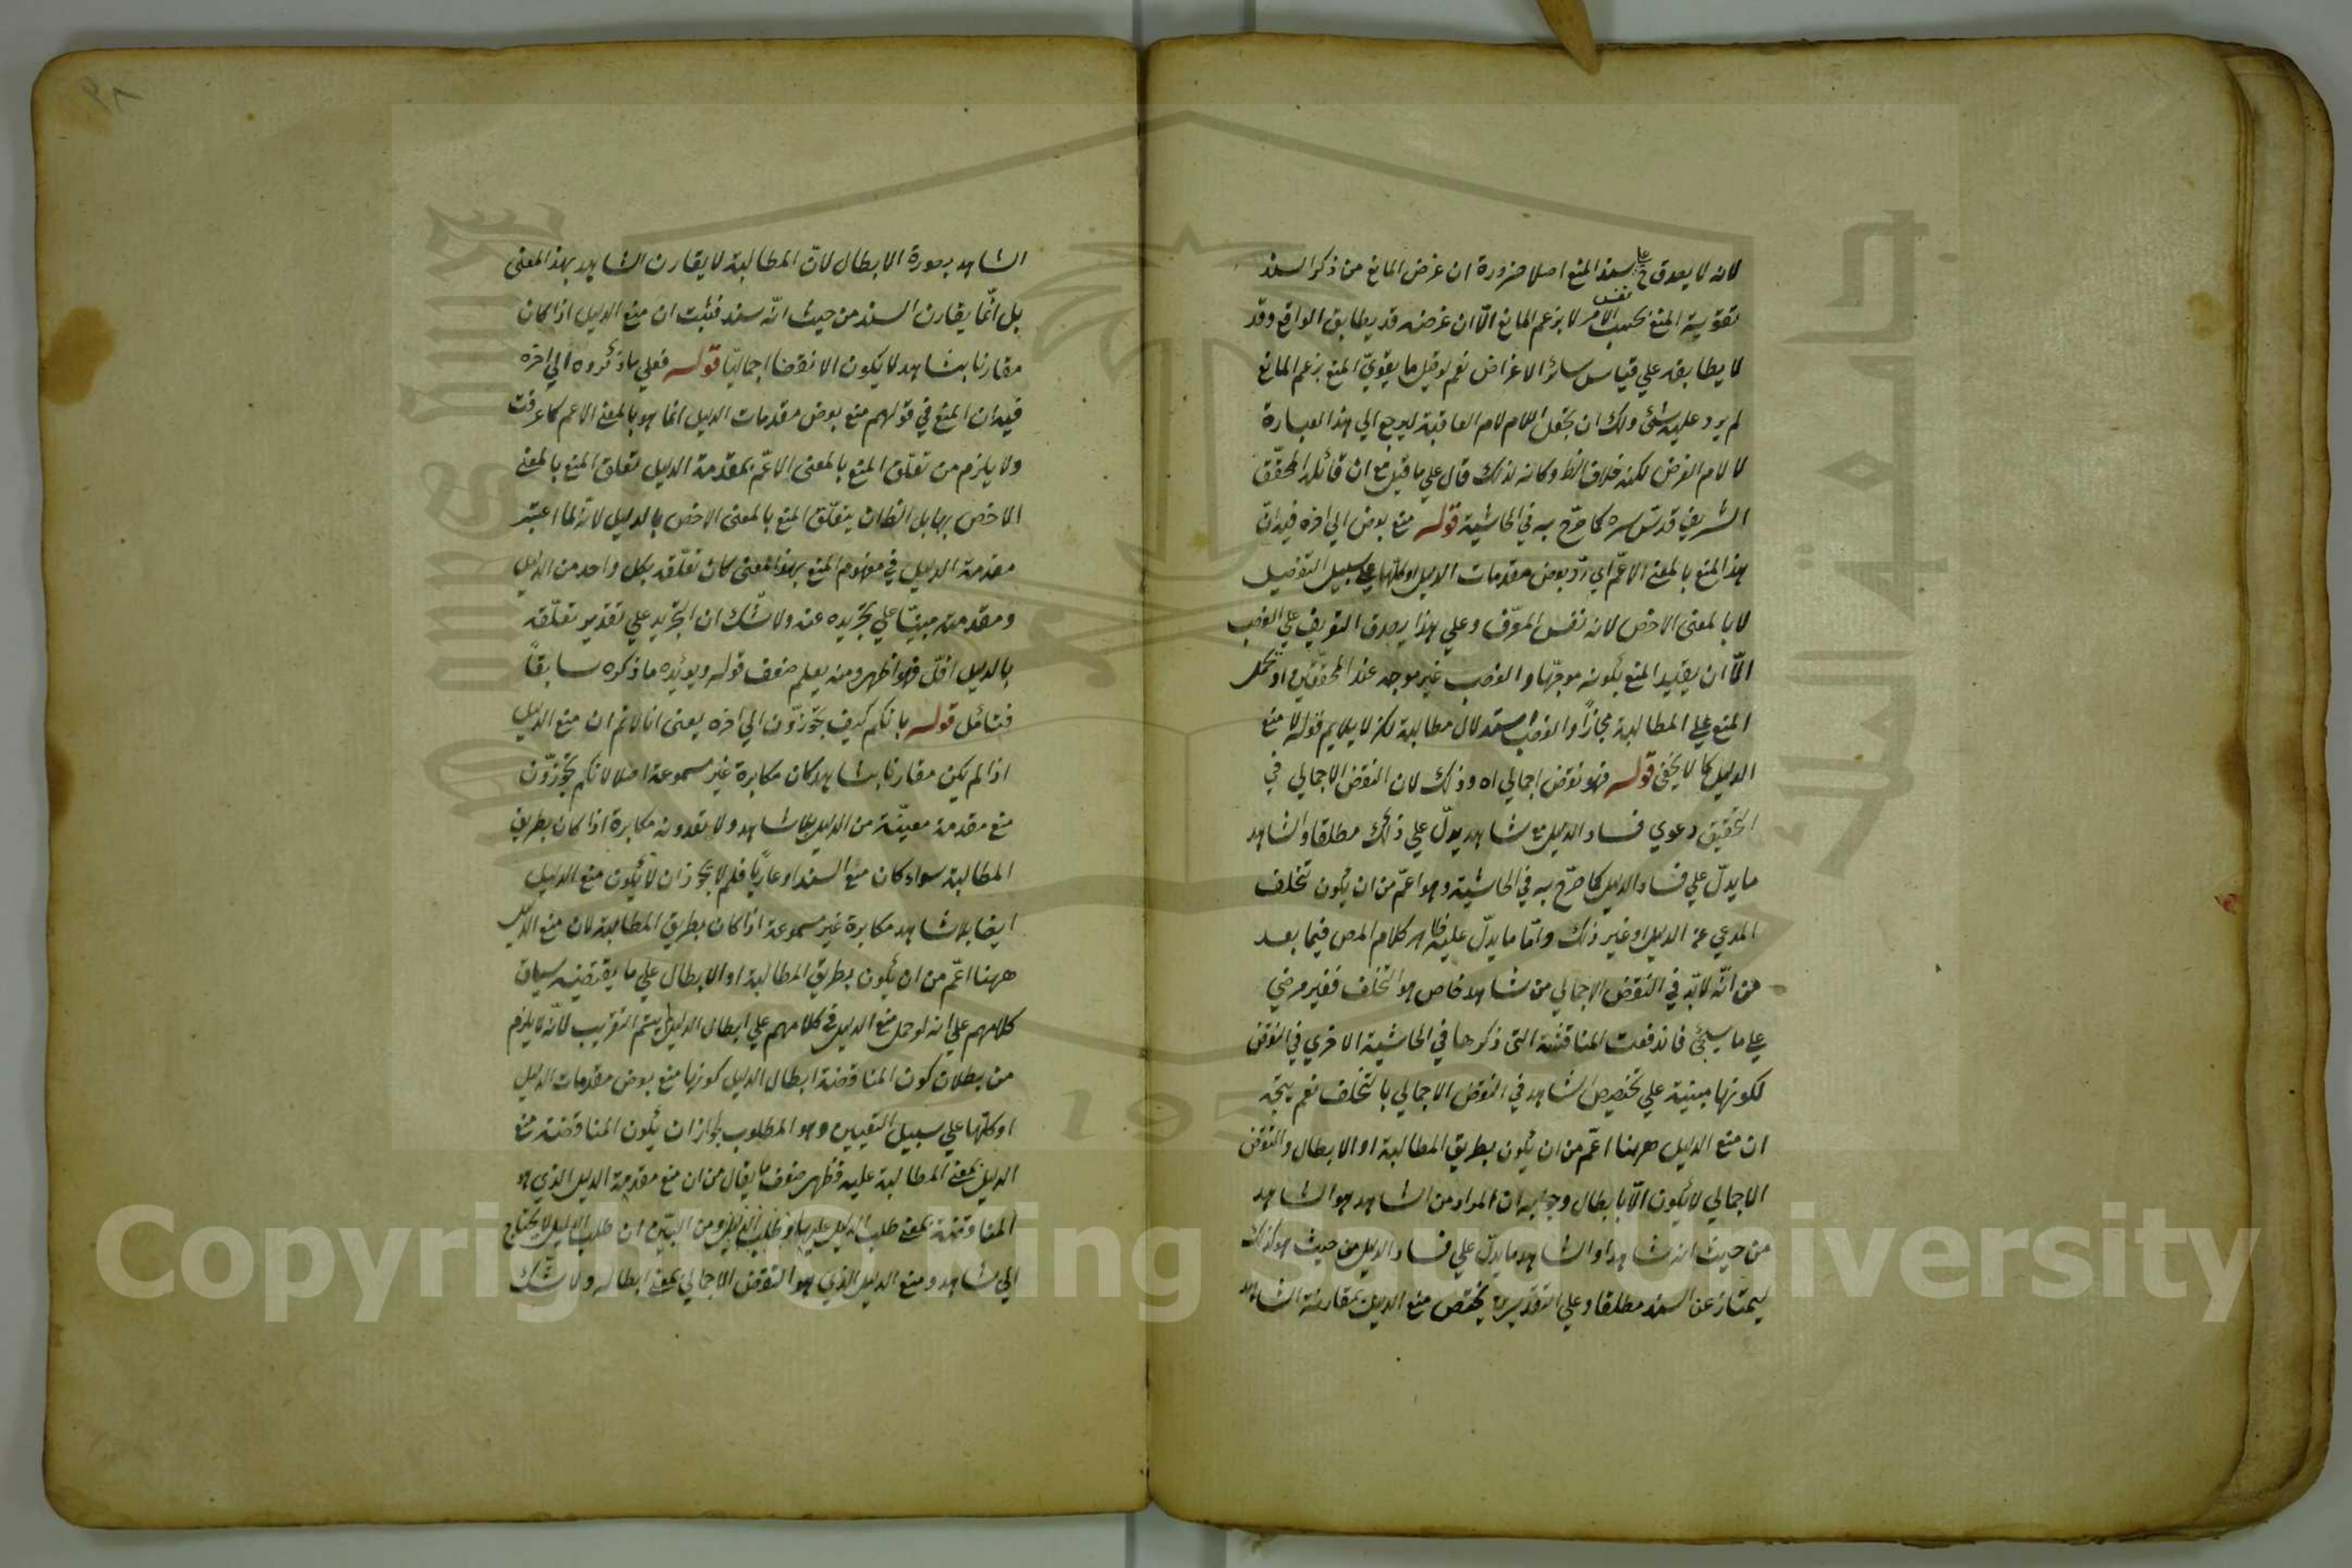 لانه لا يصدق ح على سند المنع اصلا ضرورة ان غرض المانع من ذكر السند
تقوية المنع بحسب نفس الامر لا بزعم المانع الّا ان غرضه قد يطابق الواقع وقد
لا يطابقه علي قياس سائر الاغراض نعم لو قيل ما يقوّي المنع بزعم المانع
لم يرد عليه شئ ولك ان تجعل اللام لام العاقبة ليرجع الي هذا العبارة
لا لام الغرض لكنه خلاف الظ وكانه لذلك قال علي ما قيل مع ان قائله المحقّق
الشريف قدس سره كما صرّح به في الحاشية قوله منع بعض الي اخره فيه انّ
هذا المنع بالمعنى الاعمّ اي ردّ بعض مقدمات الدليل او كلّها علي سبيل التفصيل
لا بالمعنى الاخص لانه نفس المعرّف وعلي هذا يصدق التعريف علي الغصب
الّا ان يقيد المنع بكونه موجّها والغصب غير موجه عند المحققين او يحمل
المنع علي المطالبة مجازا والغصب استدلال لا مطالبة لكن لا يلايم قوله لا منع
الدليل كما لا يخفى قوله فهو نقض اجمالي اه وذلك لان النقض الاجمالي في
التحقيق دعوي فساد الدليل مع شاهد يدلّ علي ذلك مطلقا والشاهد
ما يدلّ علي فساد الدليل كما صرّح به في الحاشية وهو اعمّ من ان يكون تخلف
المدعي عن الدليل او غير ذلك وامّا ما يدلّ عليه ظاهر كلام المص فيما بعد
من انّه لا بدّ في النقض الاجمالي من شاهد خاص هو التخلف فغير مرضي
علي ما سيجئ فاندفعت المناقشة التى ذكرها في الحاشية الاخري في النقض
لكونها مبنية علي تخصيص الشاهد في النقض الاجمالي بالتخلف نعم يتجه
ان منع الدليل ههنا اعمّ من ان يكون بطريق المطالبة او الابطال والنقض
الاجمالي لا يكون الّا بابطال وجوابه ان المراد من الشاهد هو الشاهد
من حيث انه شاهد او الشاهد ما يدلّ علي فساد الدليل من حيث هو كذلك
ليمتاز عن السند مطلقا وعلي التقديرين يختص منع الدليل بمقارنة الشاهد
الشاهد بصورة الابطال لانّ المطالبة لا يقارن الشاهد بهذا المعنى
بل انّما يقارن السند من حيث انّه سند فثبت ان منع الدليل اذا كان
مقارنا بشاهد لا يكون الا نقضا اجماليّا قوله فعلي ما ذكروه الي اخره
فيه ان المنع في قولهم منع بعض مقدمات الدليل انما هو بالمعنى الاعم كما عرفت
ولا يلزم من تعلّق المنع بالمعنى الاعمّ بمقدمة الدليل تعلق المنع بالمعنى
الاخص بها بل الظ ان يتعلّق المنع بالمعنى الاخص بالدليل لانه لما اعتبر
مقدمة الدليل في مفهوم المنع بهذا المعنى كان تعلّقه بكل واحد من الدليل
ومقدمته مبنيّا علي تجريده عنه ولا شك ان التجريد علي تقدير تعلّقه
بالدليل اقلّ فهو اظهر ومنه يعلم ضعف قوله ويؤيده ما ذكره سابقاً
فتأمل قوله بانكم كيف تجوّزون الي اخره يعنى انا لا نم ان منع الدليل
اذا لم يكن مقارنا بشاهد كان مكابرة غير مسموعة اصلا لانكم تجوّزون
منع مقدمة معيّنة من الدليل بلا شاهد ولا تعدونه مكابرة اذا كان بطريق
المطالبة سواء كان مع السند او عاريا فلم لا يجوز ان لا يكون منع الدليل
ايضا بلا شاهد مكابرة غير مسموعة اذا كان بطريق المطالبة لان منع الدليل
ههنا اعمّ من ان يكون بطريق المطالبة او الابطال علي ما يقتضيه سياق
كلامهم علي انه لو حمل منع الدليل في كلامهم علي ابطال الدليل لم يتم التقريب لانّه لا يلزم
من بطلان كون المناقضة ابطال الدليل كونها منع بعض مقدمات الدليل
او كلّها علي سبيل التعيين وهو المطلوب لجواز ان يكون المناقضة منع
الدليل بمعنى المطالبة عليه فظهر ضعف ما يقال من ان منع مقدمة الدليل الذي هو
المناقضة بمعنى طلب الدليل عليها ومن البيّن ان طلب الدليل لا يحتاج
الي شاهد ومنع الدليل الذي هو النقض الاجمالي بمعنى ابطاله ولا شك
Copyright © King Saud University
1957